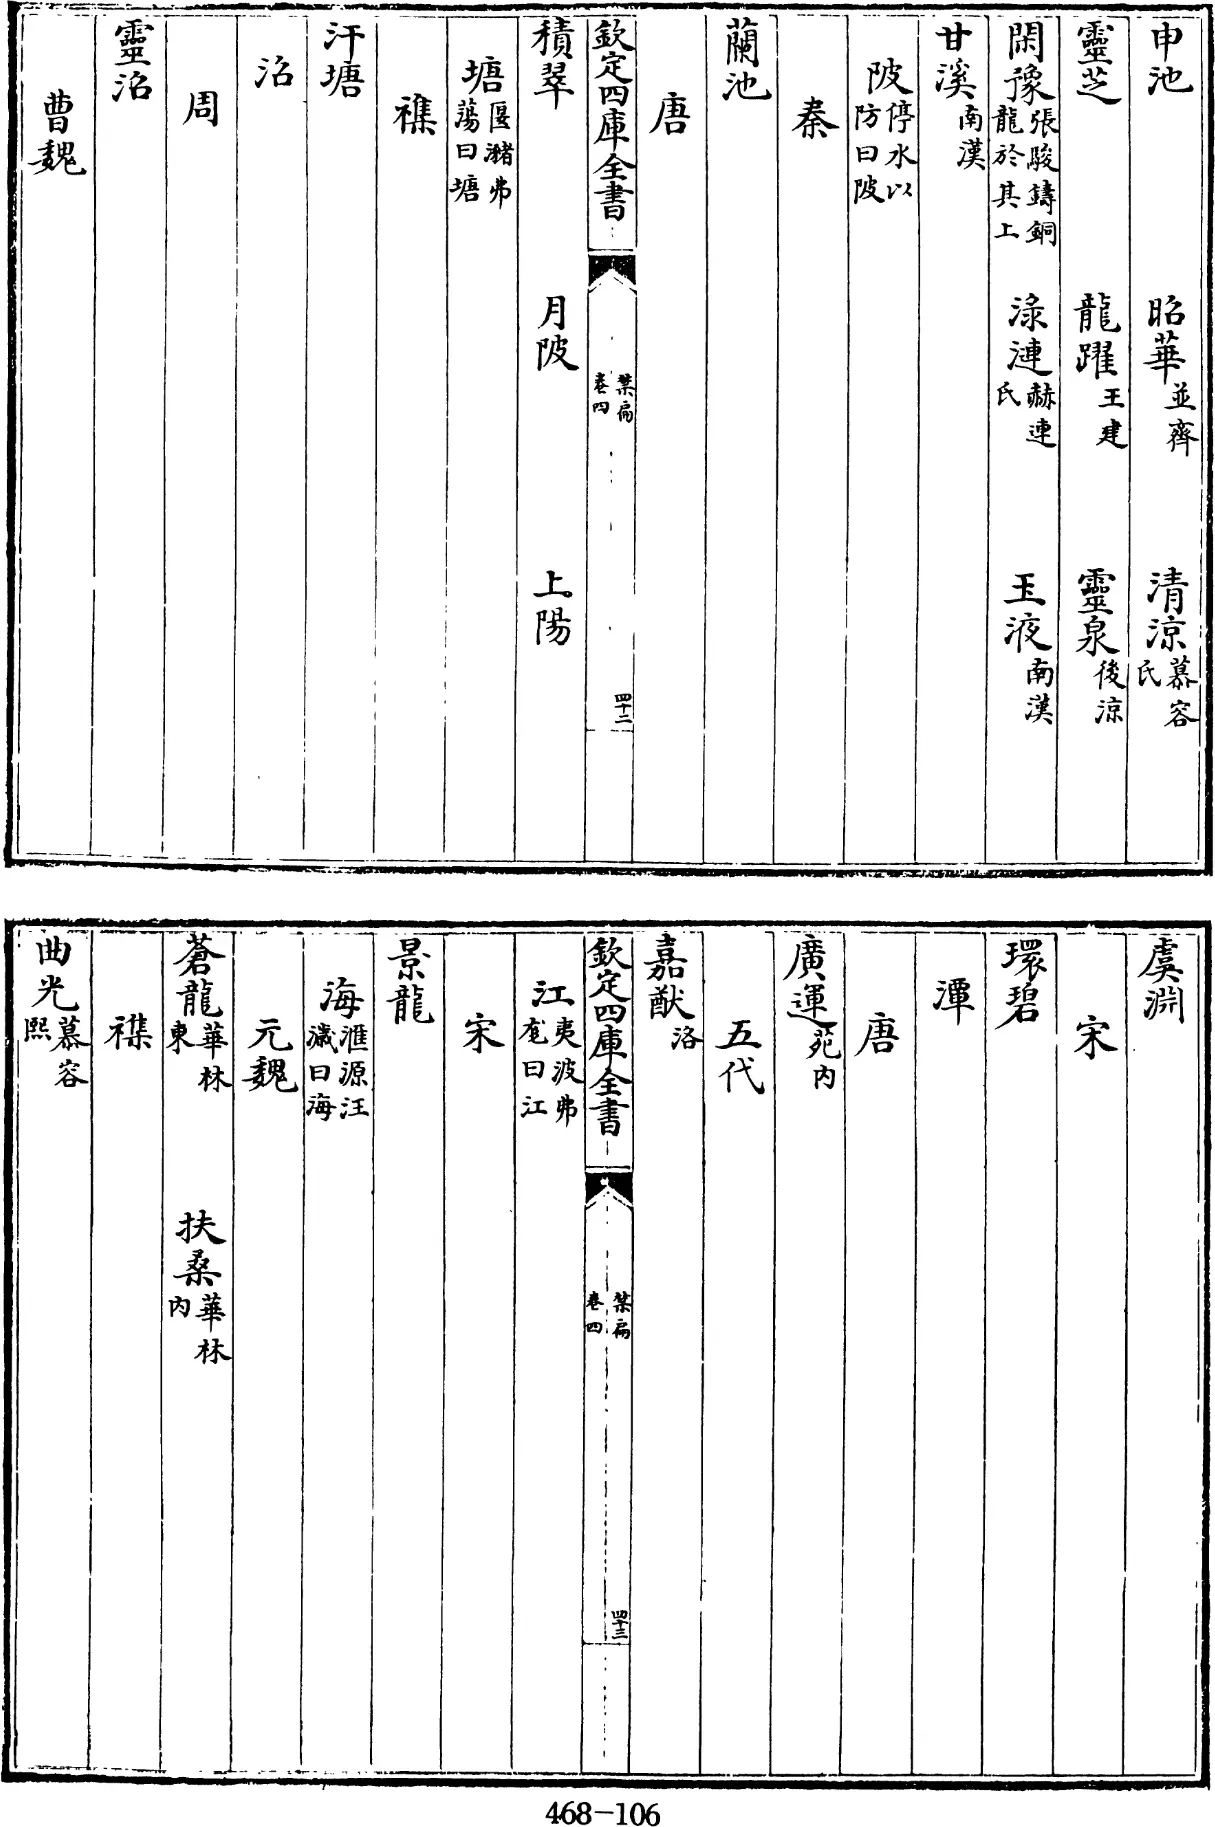 申池　昭華並齊　清涼慕容氏
靈芝　龍躍王建　靈泉後涼
閑豫張駿鑄銅龍於其上　淥漣赫連氏　玉液南漢
甘溪南漢
陂停水以防曰陂
秦
蘭池
唐
欽定四庫全書　禁扁卷四　四十二
積翠　月陂　上陽
塘匽瀦弗蕩曰塘
襍
汗塘
沼
周
靈沼
曹魏
虞淵
宋
環碧
潭
唐
廣運苑内
五代
嘉猷洛
欽定四庫全書　禁扁卷四　四十三
江夷波弗曰江
宋
景龍
海滙源汪濊曰海
元魏
蒼龍華林東　扶桑華林内
襍
曲光慕容熙
468-106